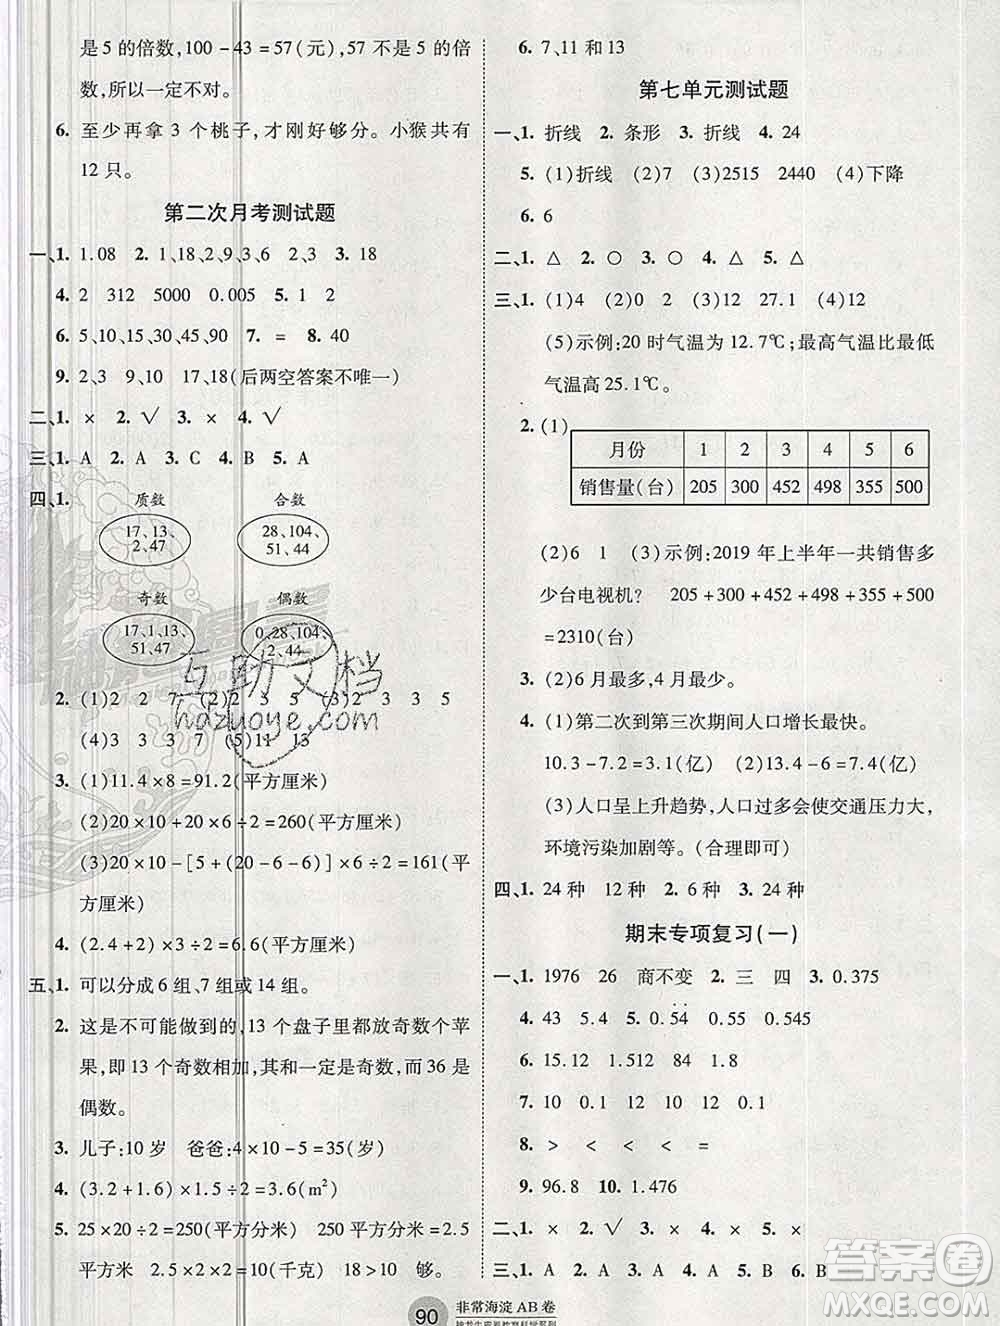 是5的倍数,100-43=57(元),57不是5的倍
数,所以一定不对。
6. 至少再拿3个桃子,才刚好够分。小猴共有
12只。
第二次月考测试题
一、1. 1.08 2. 1,18、2、9、3、6 2、3 3. 18
4. 2 312 5000 0.005 5. 1 2
6. 5、10、15、30、45、90 7. = 8. 40
9. 2、3 9、10 17、18(后两空答案不唯一)
二、1. × 2. √ 3. × 4. √
三、1. A 2. A 3. C 4. B 5. A
四、1. 质数 合数
17、13、 28、104、
2、47 51、44
奇数 偶数
17、1、13、 0、28、104、
51、47 2、44
2. (1)2 2 7 (2)2 5 5 (3)2 3 3 5
(4)3 3 3 7 (5)11 13
3. (1)11.4×8=91.2(平方厘米)
(2)20×10+20×6÷2=260(平方厘米)
(3)20×10-[5+(20-6-6)]×6÷2=161(平
方厘米)
4. (2.4+2)×3÷2=6.6(平方厘米)
五、1. 可以分成6组、7组或14组。
2. 这是不可能做到的,13个盘子里都放奇数个苹
果,即13个奇数相加,其和一定是奇数,而36是
偶数。
3. 儿子:10岁 爸爸:4×10-5=35(岁)
4. (3.2+1.6)×1.5÷2=3.6(m²)
5. 25×20÷2=250(平方分米) 250平方分米=2.5
平方米 2.5×2×2=10(千克) 18>10 够。
6. 7、11和13
第七单元测试题
一、1. 折线 2. 条形 3. 折线 4. 24
5. (1)折线 (2)7 (3)2515 2440 (4)下降
6. 6
二、1. △ 2. ○ 3. ○ 4. △ 5. △
三、1. (1)4 (2)0 2 (3)12 27.1 (4)12
(5)示例:20时气温为12.7℃;最高气温比最低
气温高25.1℃。
2. (1)
月份 1 2 3 4 5 6
销售量(台) 205 300 452 498 355 500
(2)6 1 (3)示例:2019年上半年一共销售多
少台电视机? 205+300+452+498+355+500
=2310(台)
3. (2)6月最多,4月最少。
4. (1)第二次到第三次期间人口增长最快。
10.3-7.2=3.1(亿) (2)13.4-6=7.4(亿)
(3)人口呈上升趋势,人口过多会使交通压力大,
环境污染加剧等。(合理即可)
四、1. 24种 12种 2. 6种 3. 24种
期末专项复习(一)
一、1. 1976 26 商不变 2. 三 四 3. 0.375
4. 43 5.4 5. 0.5̇4̇ 0.55 0.545
6. 15.12 1.512 84 1.8
7. 10 0.1 12 10 120 0.1
8. > < < < =
9. 96.8 10. 1.476
二、1. × 2. √ 3. × 4. × 5. ×
三、1. A 2. A 3. C 4. B 5. B 6. B
90 非常海淀AB卷
互助文档
hdzuoye.com
答案圈
MXQE.COM